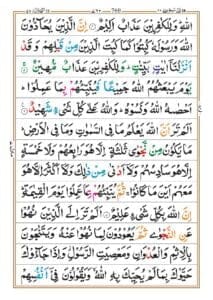 اللّٰهِ وَلِلْكٰفِرِيْنَ عَذَابٌ اَلِيْمٌ اِنَّ الَّذِيْنَ يُحَآدُّوْنَ
اللّٰهَ وَرَسُوْلَهٗ كُبِتُوْا كَمَا كُبِتَ الَّذِيْنَ مِنْ قَبْلِهِمْ وَقَدْ
اَنْزَلْنَآ اٰيٰتٍۭ بَيِّنٰتٍ وَلِلْكٰفِرِيْنَ عَذَابٌ مُّهِيْنٌ
يَوْمَ يَبْعَثُهُمُ اللّٰهُ جَمِيْعًا فَيُنَبِّئُهُمْ بِمَا عَمِلُوْا
اَحْصٰىهُ اللّٰهُ وَنَسُوْهُ وَاللّٰهُ عَلٰى كُلِّ شَيْءٍ شَهِيْدٌ
اَلَمْ تَرَ اَنَّ اللّٰهَ يَعْلَمُ مَا فِي السَّمٰوٰتِ وَمَا فِي الْاَرْضِ
مَا يَكُوْنُ مِنْ نَّجْوٰى ثَلٰثَةٍ اِلَّا هُوَ رَابِعُهُمْ وَلَا خَمْسَةٍ
اِلَّا هُوَ سَادِسُهُمْ وَلَآ اَدْنٰى مِنْ ذٰلِكَ وَلَآ اَكْثَرَ اِلَّا هُوَ
مَعَهُمْ اَيْنَ مَا كَانُوْا ثُمَّ يُنَبِّئُهُمْ بِمَا عَمِلُوْا يَوْمَ الْقِيٰمَةِ
اِنَّ اللّٰهَ بِكُلِّ شَيْءٍ عَلِيْمٌ اَلَمْ تَرَ اِلَى الَّذِيْنَ نُهُوْا
عَنِ النَّجْوٰى ثُمَّ يَعُوْدُوْنَ لِمَا نُهُوْا عَنْهُ وَيَتَنٰجَوْنَ
بِالْاِثْمِ وَالْعُدْوَانِ وَمَعْصِيَتِ الرَّسُوْلِ وَاِذَا جَآءُوْكَ
حَيَّوْكَ بِمَا لَمْ يُحَيِّكَ بِهِ اللّٰهُ وَيَقُوْلُوْنَ فِيْٓ اَنْفُسِهِمْ